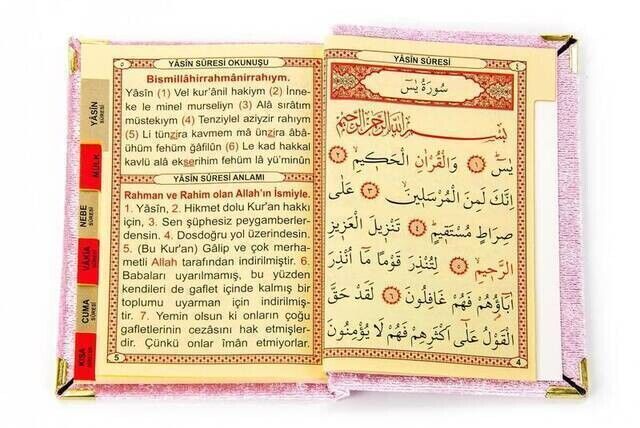 YÂSİN SÛRESİ OKUNUŞU
Bismillâhirrahmânirrahıym.
Yâsîn (1) Vel kur'ânil hakiym (2) İnne-
ke le minel murseliyn (3) Alâ sırâtım
müstekıym (4) Tenziylel aziyzir rahıym
(5) Li tünzira kavmem mâ ünzira âbâ-
ühüm fehüm gâfilûn (6) Le kad hakkal
kavlü alâ ekserihim fehüm lâ yü'minûn
YÂSİN SÛRESİ ANLAMI
Rahman ve Rahim olan Allah'ın İsmiyle.
1. Yâsîn, 2. Hikmet dolu Kur'an hakkı
için, 3. Sen şüphesiz peygamberler-
densin. 4. Dosdoğru yol üzerindesin.
5. (Bu Kur'an) Gâlip ve çok merha-
metli Allah tarafından indirilmiştir. 6.
Babaları uyarılmamış, bu yüzden
kendileri de gaflet içinde kalmış bir
toplumu uyarman için indirilmiş-
tir. 7. Yemin olsun ki onların çoğu
gafletlerinin cezasını hak etmişler-
dir. Çünkü onlar îmân etmiyorlar.
5
YÂSİN SÛRESİ
MÜLK
NEBE SÛRESİ
VAKIA
CUMA SÛRESİ
KISA
YÂSİN SÛRESİ
٤
سُورَةُ يٰسٓ
بِسْمِ اللهِ الرَّحْمٰنِ الرَّحِيمِ
يٰسٓ ١ وَالْقُرْاٰنِ الْحَكِيمِ ٢
اِنَّكَ لَمِنَ الْمُرْسَلِينَ ٣ عَلٰى
صِرَاطٍ مُسْتَقِيمٍ ٤ تَنْزِيلَ الْعَزِيزِ
الرَّحِيمِ ٥ لِتُنْذِرَ قَوْمًا مَٓا اُنْذِرَ
اٰبَٓاؤُهُمْ فَهُمْ غَافِلُونَ ٦ لَقَدْ حَقَّ
الْقَوْلُ عَلٰٓى اَكْثَرِهِمْ فَهُمْ لَا يُؤْمِنُونَ
4